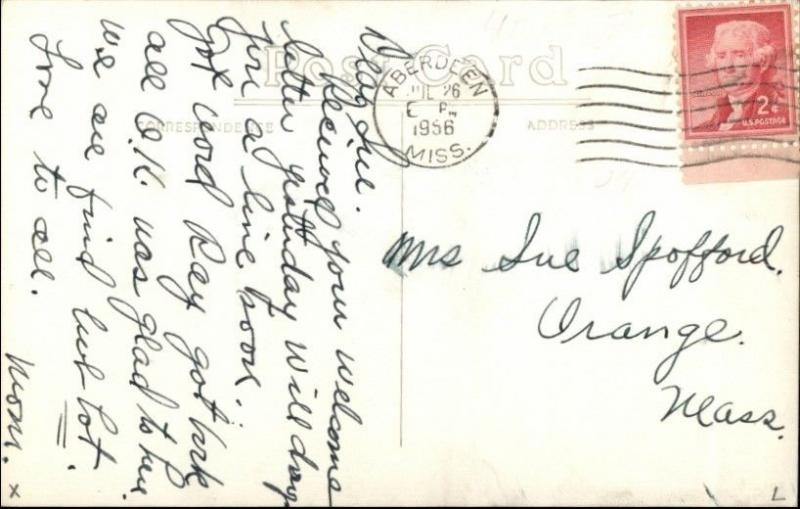 Post Card
CORRESPONDENCE
ADDRESS
ABERDEEN
JUL 26
PM
1956
MISS.
2¢
U.S. POSTAGE
Dear Sue.
Received your welcome
letter yesterday will drop
you a line soon.
Got word Ray got back
all O.K. was glad to hear
we are find but hot.
Love to all.
Mom.
x
Mrs Sue Spofford.
Orange.
Mass.
L